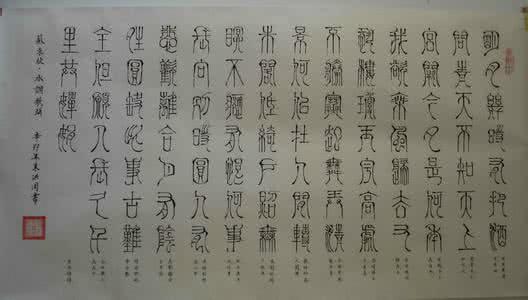 明月幾時有把酒
問青天不知天上
宮闕今夕是何年
我欲乘風歸去又
恐瓊樓玉宇高處
不勝寒起舞弄清
影何似在人間轉
朱閣低綺戶照無
眠不應有恨何事
長向別時圓人有
悲歡離合月有陰
晴圓缺此事古難
全但願人長久千
里共嬋娟
蘇東坡·水調歌頭 辛卯年